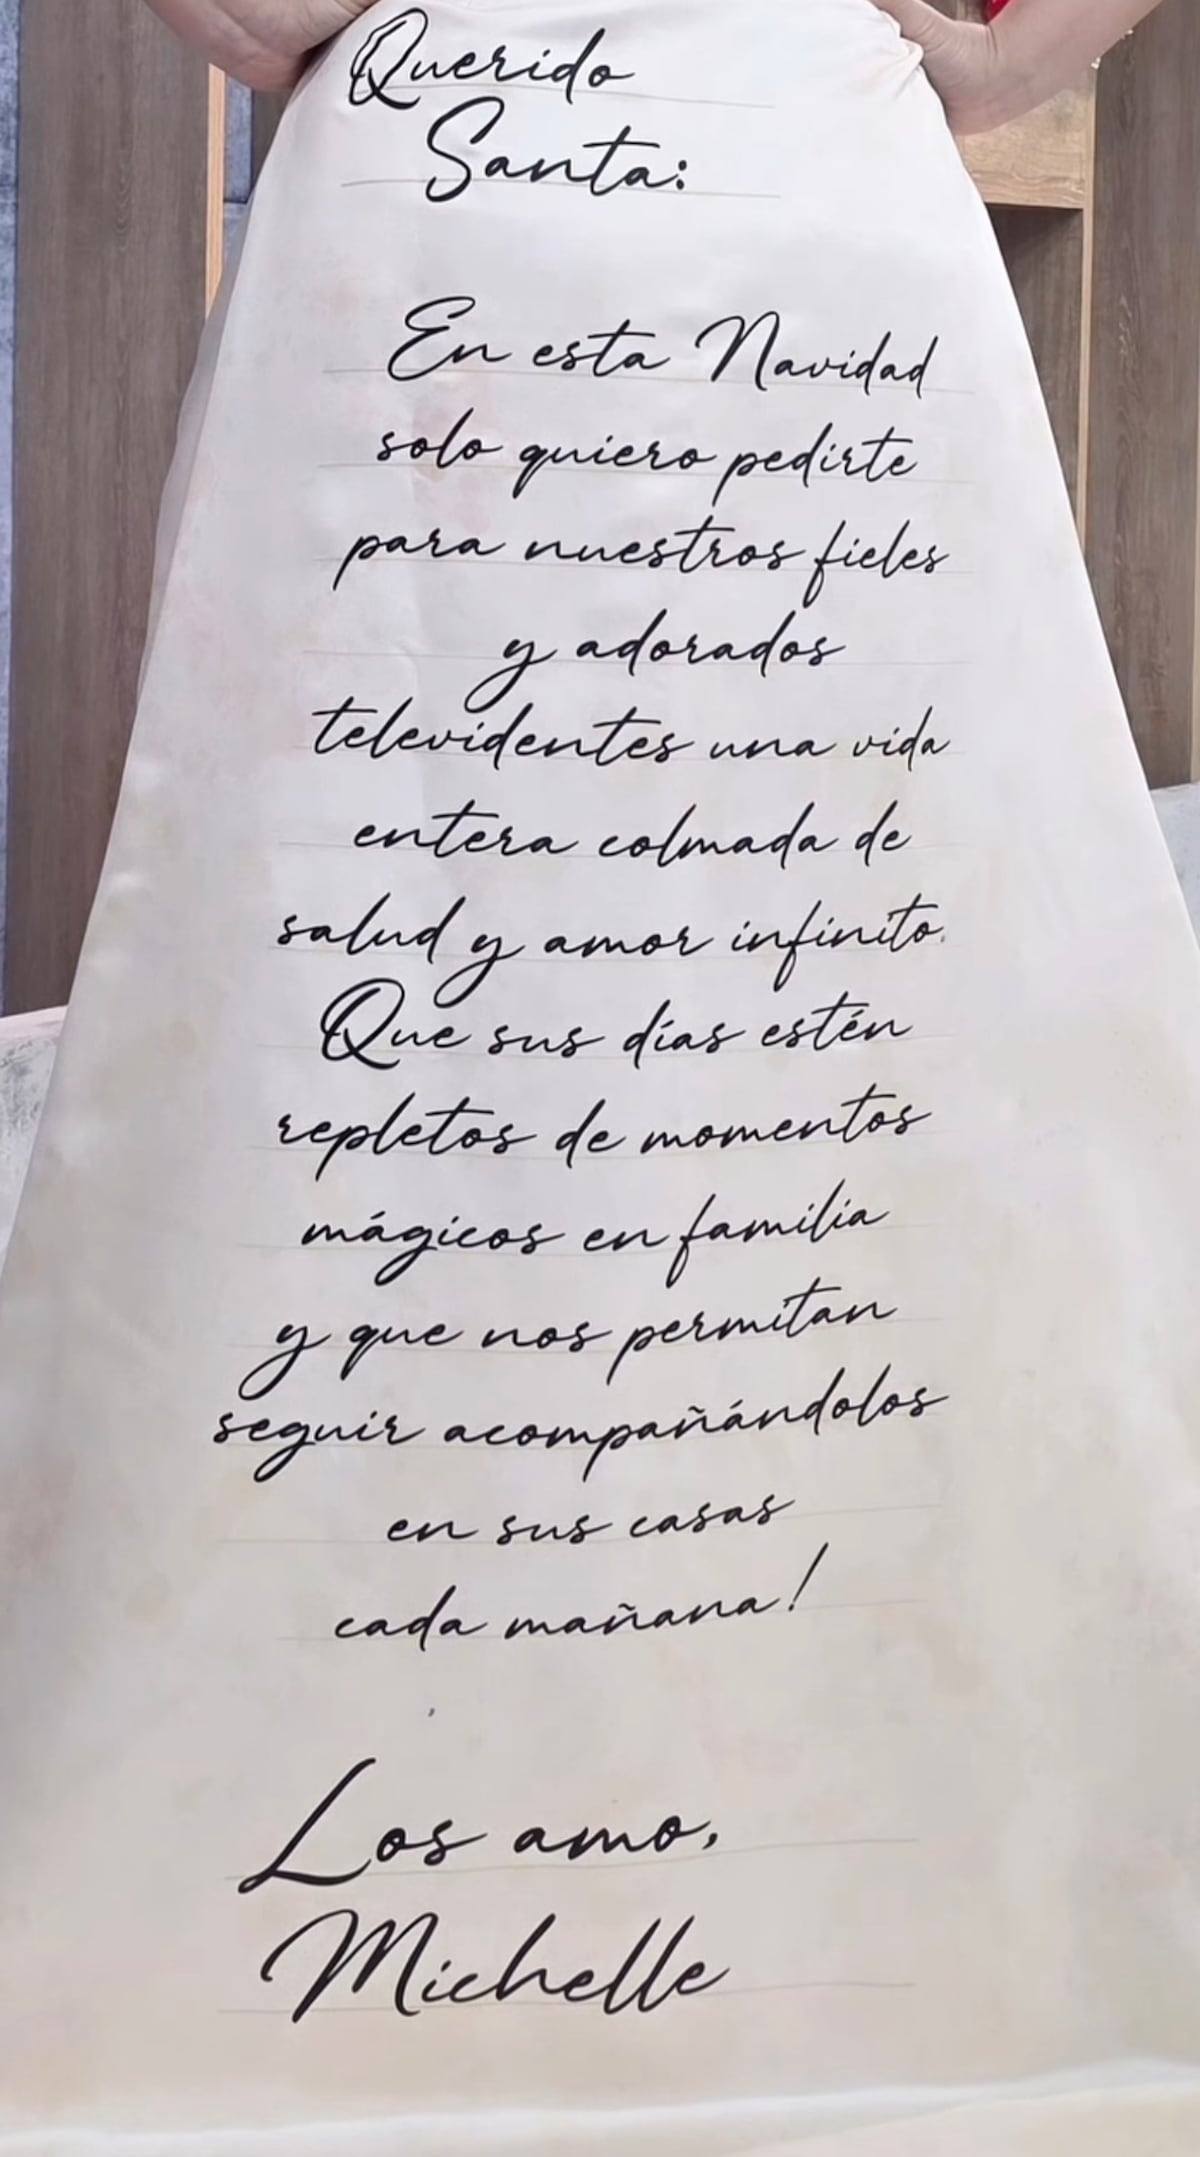 Querido
Santa:
En esta Navidad
solo quiero pedirte
para nuestros fieles
y adorados
televidentes una vida
entera colmada de
salud y amor infinito.
Que sus días estén
repletos de momentos
mágicos en familia
y que nos permitan
seguir acompañándolos
en sus casas
cada mañana!
Los amo,
Michelle